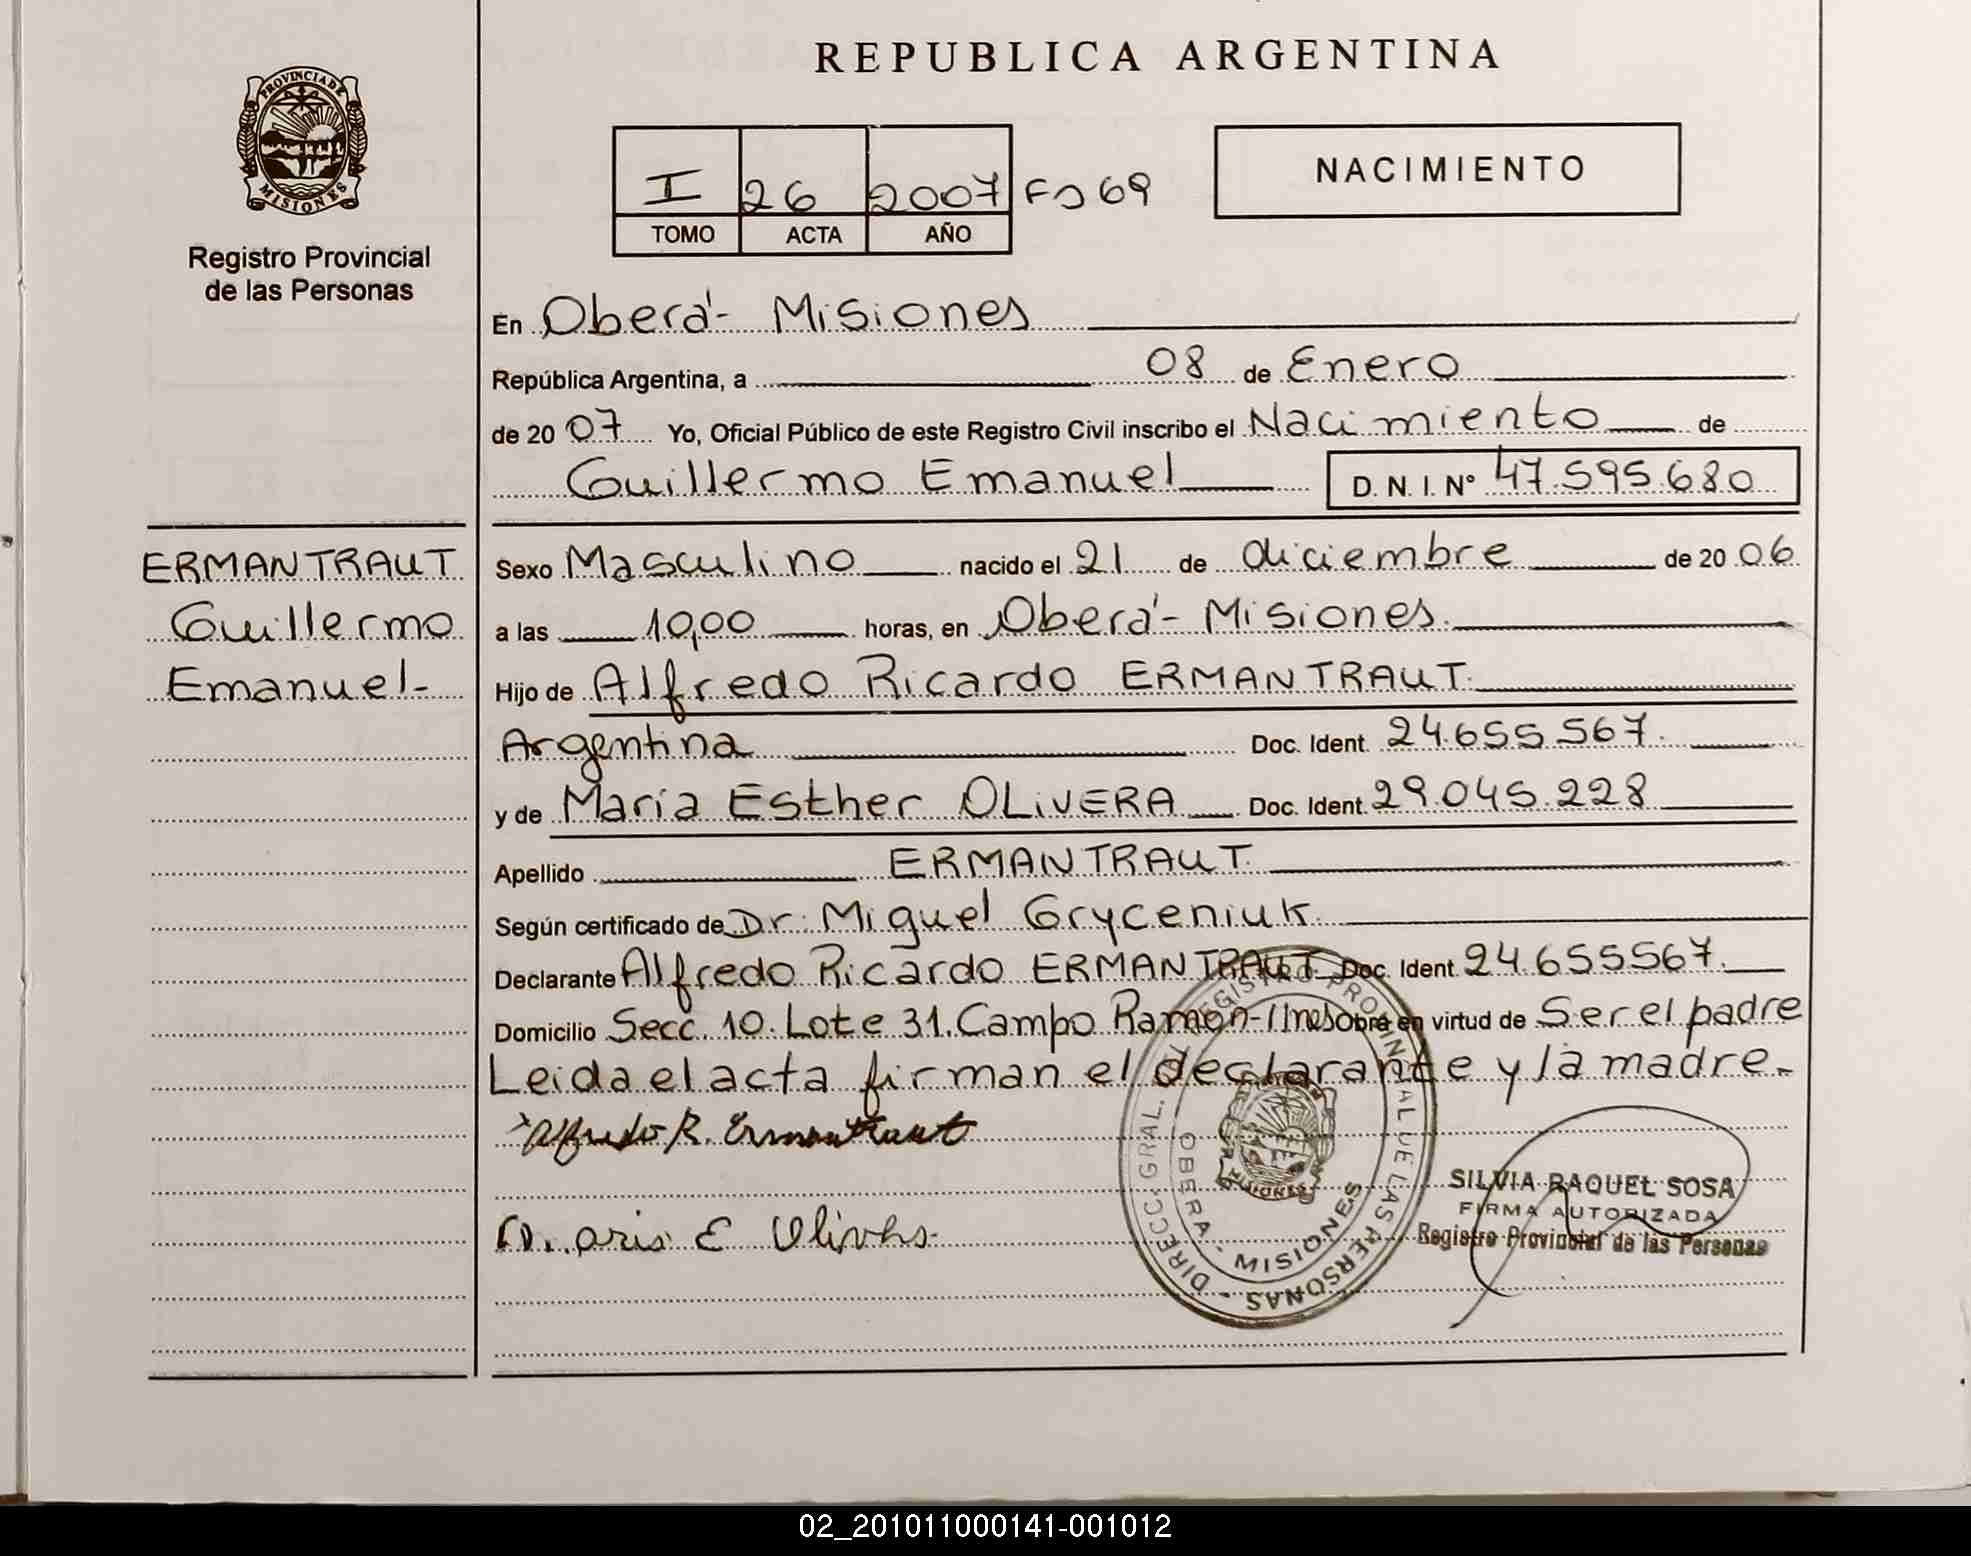 REPUBLICA ARGENTINA
PROVINCIA DE MISIONES
Registro Provincial
de las Personas
I 26 2007 Fo 69
TOMO ACTA AÑO
NACIMIENTO
En Oberá - Misiones
República Argentina, a 08 de Enero
de 20 07 Yo, Oficial Público de este Registro Civil inscribo el Nacimiento de
Guillermo Emanuel D. N. I. Nº 47.595.680
ERMANTRAUT
Guillermo
Emanuel-
Sexo Masculino nacido el 21 de diciembre de 20 06
a las 10,00 horas, en Oberá - Misiones.
Hijo de Alfredo Ricardo ERMANTRAUT.
Argentina Doc. Ident. 24.655.567.
y de María Esther OLIVERA Doc. Ident. 29.045.228
Apellido ERMANTRAUT.
Según certificado de Dr. Miguel Gryceniuk.
Declarante Alfredo Ricardo ERMANTRAUT Doc. Ident. 24.655567.
Domicilio Secc. 10. Lote 31. Campo Ramón- Obra en virtud de Ser el padre
Leida el acta firman el declarante y la madre.-
Alfredo R. Ermantraut
Maria E Olivera
DIRECC. GRAL. DEL REGISTRO PROVINCIAL DE LAS PERSONAS
OBERA - MISIONES
MISIONES
SILVIA RAQUEL SOSA
FIRMA AUTORIZADA
Registro Provincial de las Personas
02_201011000141-001012